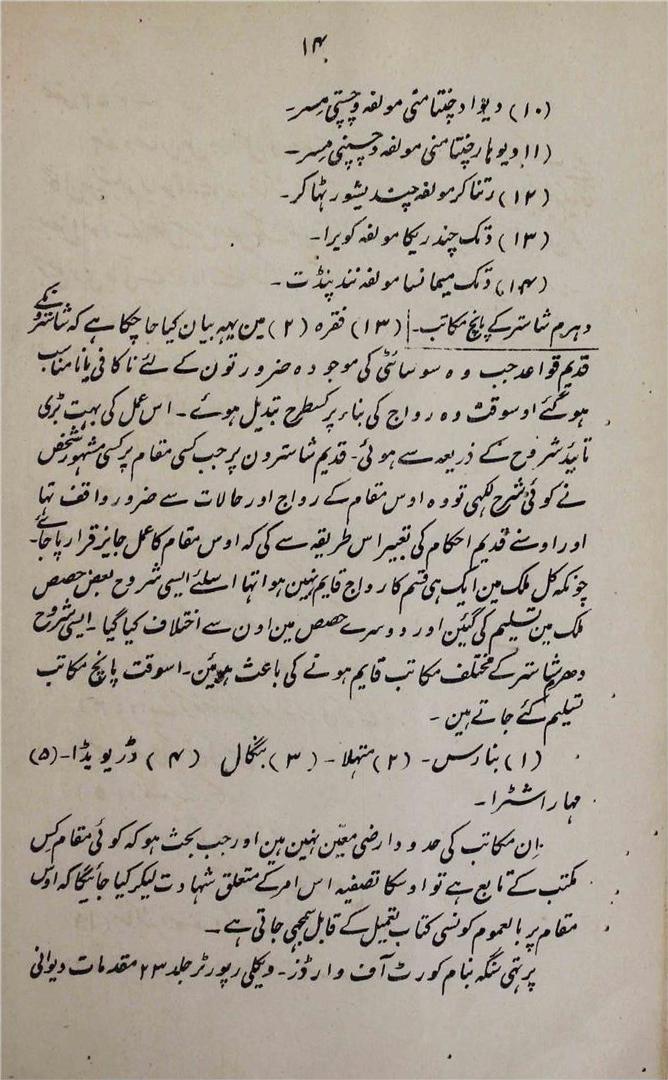 ۱۴
(۱۰) دیوا دچنتامنی مولفہ وچستی مسر۔
(۱۱) دیوہار چنتامنی مولفہ وچسپتی مسر۔
(۱۲) رتناکر مولفہ چندیشور ٹھاکر۔
(۱۳) دتک چندریکا مولفہ کویرا۔
(۱۴) دتک میمانسا مولفہ نند پنڈت۔
دہرم شاستر کے پانچ مکاتب۔ (۱۳) فقرہ (۲) مین یہہ بیان کیا جاچکا ہے کہ شاسترونکے
قدیم قواعد جب وہ سوسائٹی کی موجودہ ضرورتون کے لئے ناکافی یا نامناسب
ہوگئے اوسوقت وہ رواج کی بناء پر کسطرح تبدیل ہوئے۔ اس عمل کی بہت بڑی
تائید شروح کے ذریعہ سے ہوئی۔ قدیم شاسترون پر جب کسی مقام پر کسی مشہور شخص
نے کوئی شرح لکہی تو وہ اوس مقام کے رواج اور حالات سے ضرور واقف تہا
اور اوسنے قدیم احکام کی تعبیر اس طریقہ سے کی کہ اوس مقام کا عمل جایز قرار پاجائے۔
چونکہ کل ملک مین ایک ہی قسم کا رواج قایم نہین ہوا تہا اسلئے ایسی شروح بعض حصص
ملک مین تسلیم کی گئین اور دوسرے حصص مین اون سے اختلاف کیا گیا۔ ایسی شروح
دھرم شاستر کے مختلف مکاتب قایم ہونے کی باعث ہوئین۔ اسوقت پانچ مکاتب
تسلیم کئے جاتے ہین۔
(۱) بنارس۔ (۲) متہلا۔ (۳) بنگال (۴) ڈریویڈا۔ (۵)
مہاراشٹرا۔
ان مکاتب کی حدود ارضی معیّن نہین ہین اور جب بحث ہو کہ کوئی مقام کس
مکتب کے تابع ہے تو اوسکا تصفیہ اس امر کے متعلق شہادت لیکر کیا جائیگا کہ اوس
مقام پر بالعموم کونسی کتاب تعمیل کے قابل سمجہی جاتی ہے۔
پرتہی سنگہ بنام کورٹ آف وارڈز۔ ویکلی رپورٹر جلد ۲۳ مقدمات دیوانی